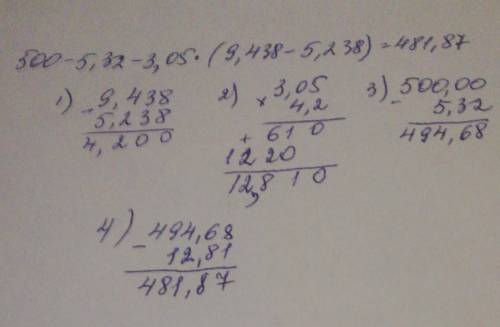 500-5,32-3,05·(9,438-5,238)=481,87
1) - 9,438
5,238
4,200
2) × 3,05
4,2
+ 610
1220
12,810
3) - 500,00
5,32
494,68
4) - 494,68
12,81
481,87